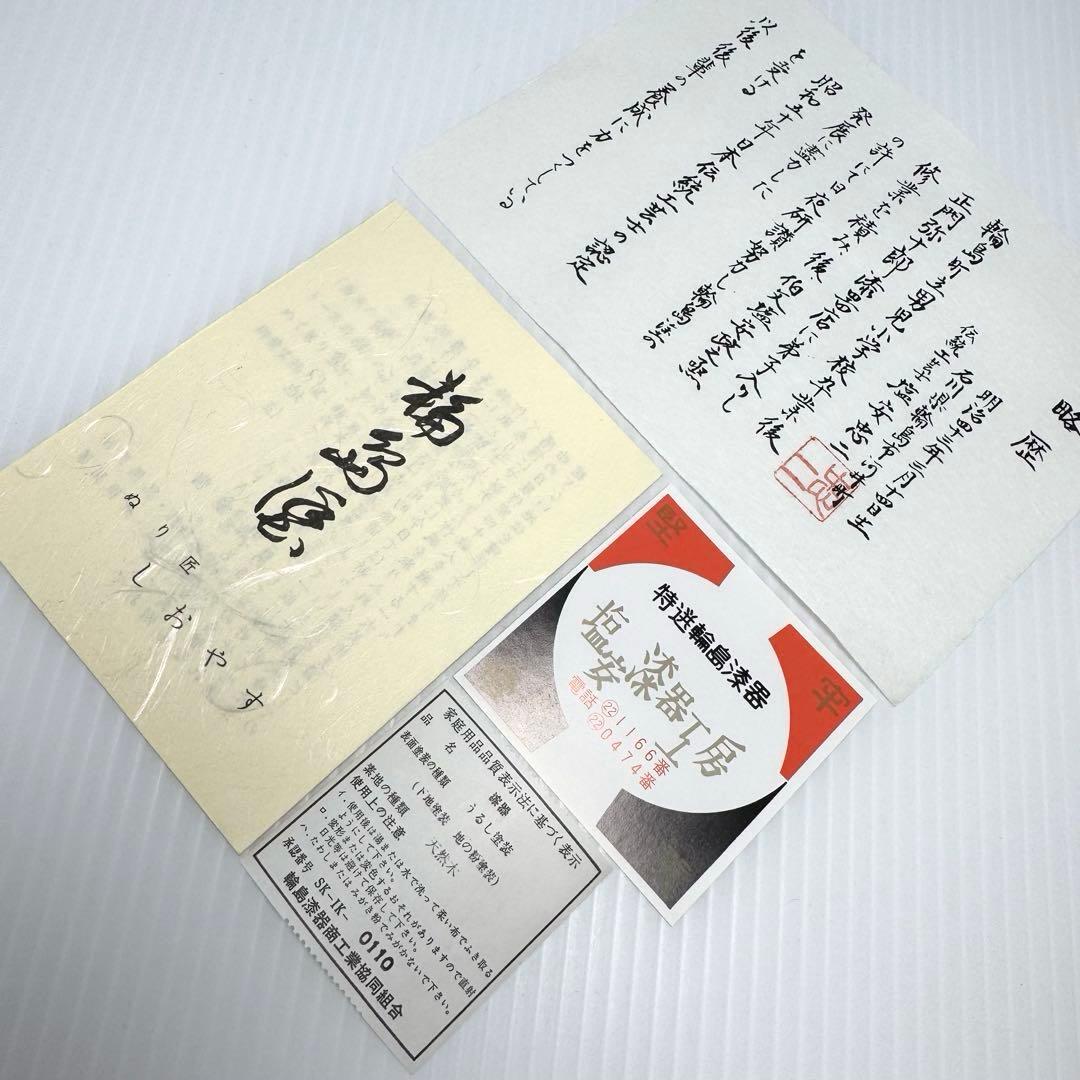 略歴
明治四十三年三月十四日生
石川県輪島市河井町
伝統工芸士 塩安忠二
輪島町立男児小学校卒業後
正門弥十郎漆器店に弟子入りし
修業を積み、後、伯父塩安政之烝
の許にて日夜研讃努力し輪島塗の
発展に尽力した
昭和五十年日本伝統工芸士の認定
を受ける
以後後輩の養成に力をつくしている
忠二
輪島塗
ぬり匠
しおやす
堅牢
特選輪島漆器
塩安漆器工房
電話 ㉒1166番
㉒0474番
家庭用品品質表示法に基づく表示
品名 漆器
表面塗装の種類 うるし塗装
(下地塗装 地の粉塗装)
素地の種類 天然木
使用上の注意
イ.使用後は湯または水で洗って柔い布でふき取る
ようにして下さい。
ロ.変形または変色するおそれがありますので直射
日光等は避けて保存して下さい。
ハ.たわしまたはみがき粉でみがかないで下さい。
承認番号 SK-IK- 0110
輪島漆器商工業協同組合